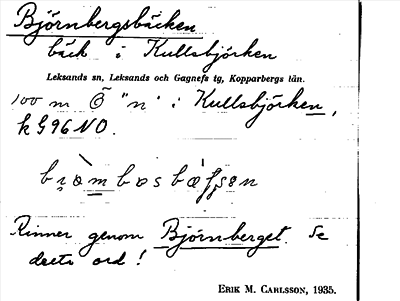 Björnbergsbäcken
bäck i Kullsbjörken
Leksands sn, Leksands och Gagnefs tg, Kopparbergs län.
100 m Ö "n" i Kullsbjörken,
k G96 NO.
Rinner genom Björnberget. Se
detta ord!
ERIK M. CARLSSON, 1935.